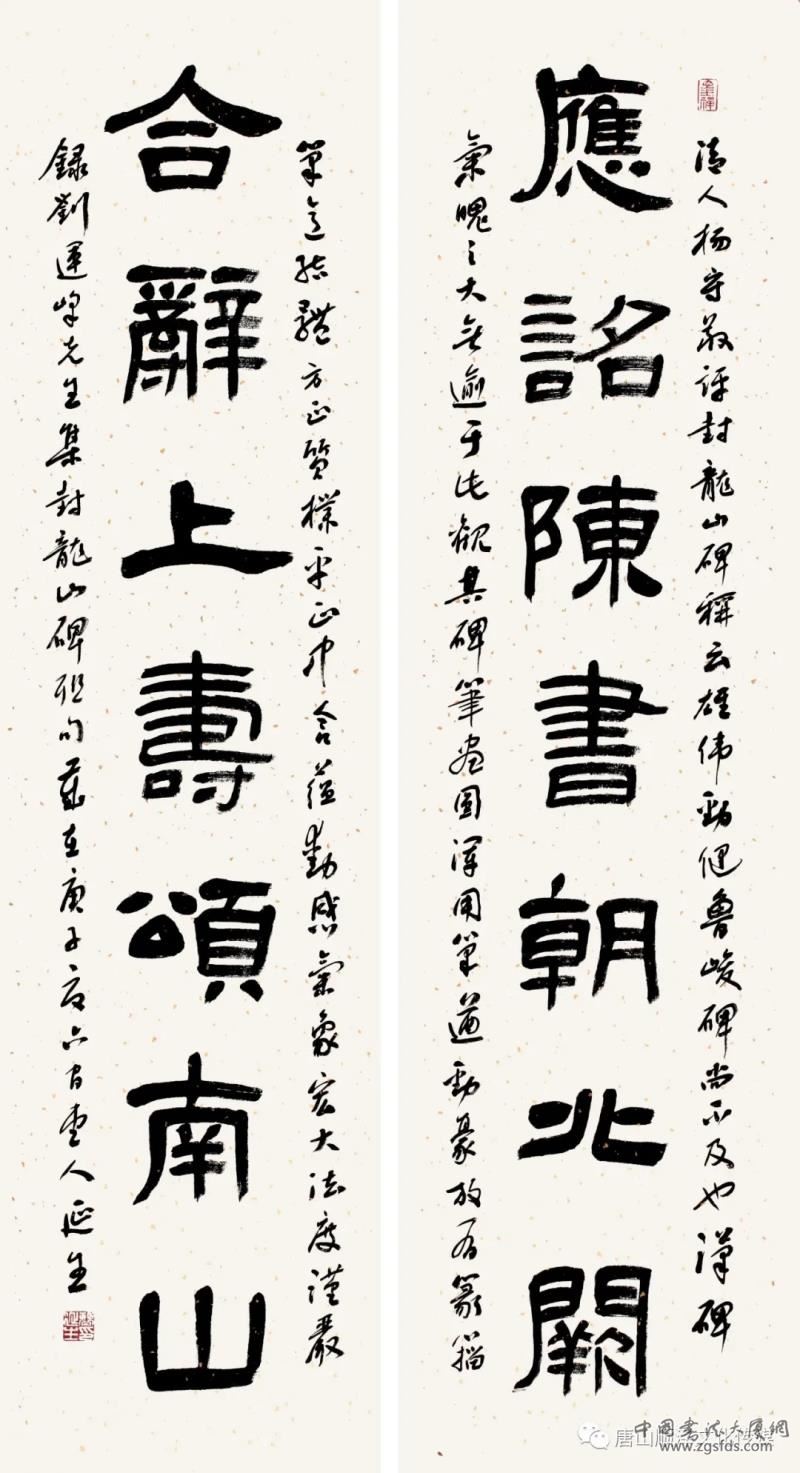 應詔陳書朝北闕
合辭上壽頌南山
清人杨守敬评封龍山碑稱云雄伟勁健魯峻碑尚不及也漢碑
氣魄之大無逾于此觀其碑筆画圆渾用筆遒勁豪放有篆籀
筆意結體方正質樸平正中含蕴動感氣象宏大法度谨嚴
録劉運峰先生集封龍山碑聯句歲在庚子夏人延生
唐山
中國書法大厦網
www.zgsfds.com